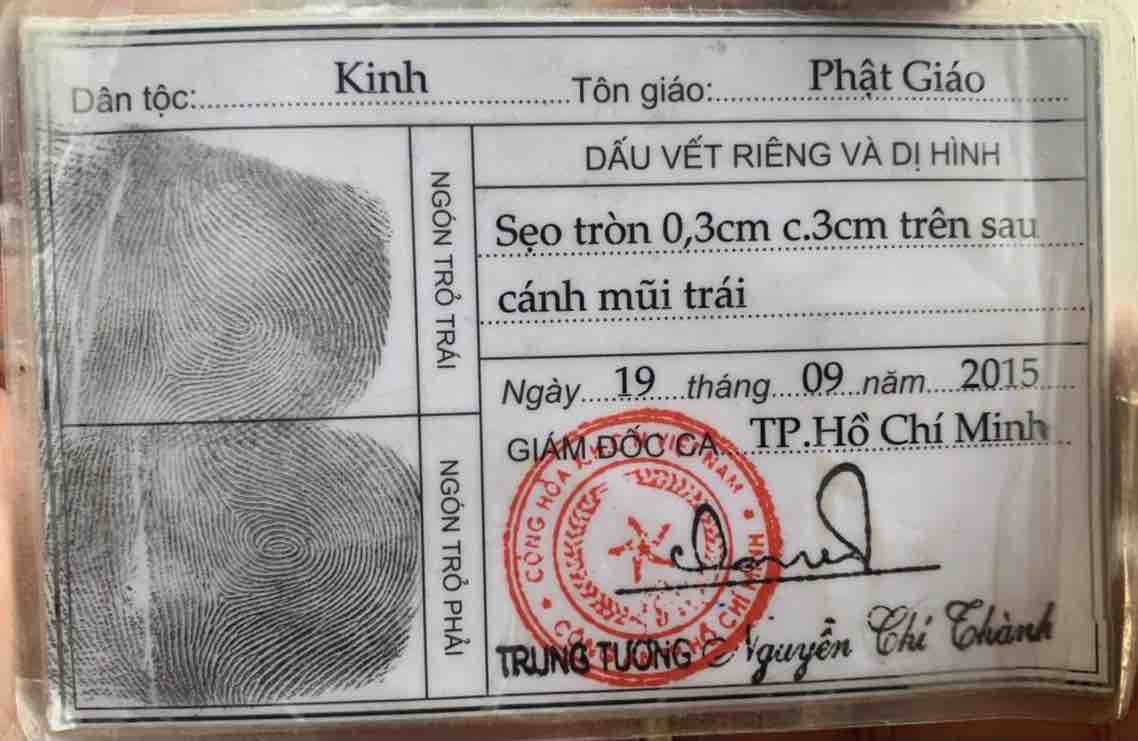 Dân tộc: Kinh Tôn giáo: Phật Giáo
NGÓN TRỎ TRÁI
DẤU VẾT RIÊNG VÀ DỊ HÌNH
Sẹo tròn 0,3cm c.3cm trên sau
cánh mũi trái
Ngày 19 tháng 09 năm 2015
GIÁM ĐỐC CA TP.Hồ Chí Minh
NGÓN TRỎ PHẢI
CỘNG HÒA VIỆT NAM
HỒ CHÍ MINH
TRUNG TƯỚNG Nguyễn Chí Thành